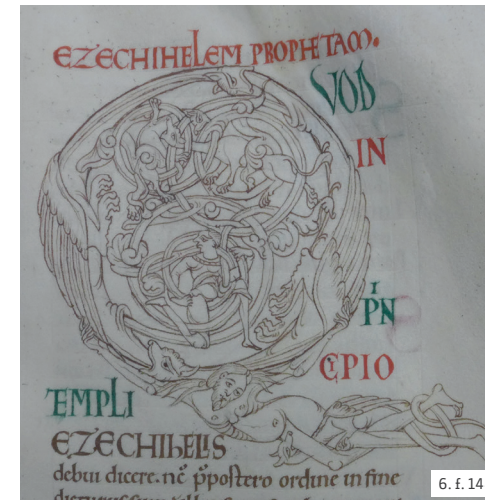 EZECHIHELEM PROPHETAM.
VOD
IN
PIN
CIPIO
TEMPLI
EZECHIHELIS
debui dicere. nc̄ p̄postero ordine in fine
6. f. 14